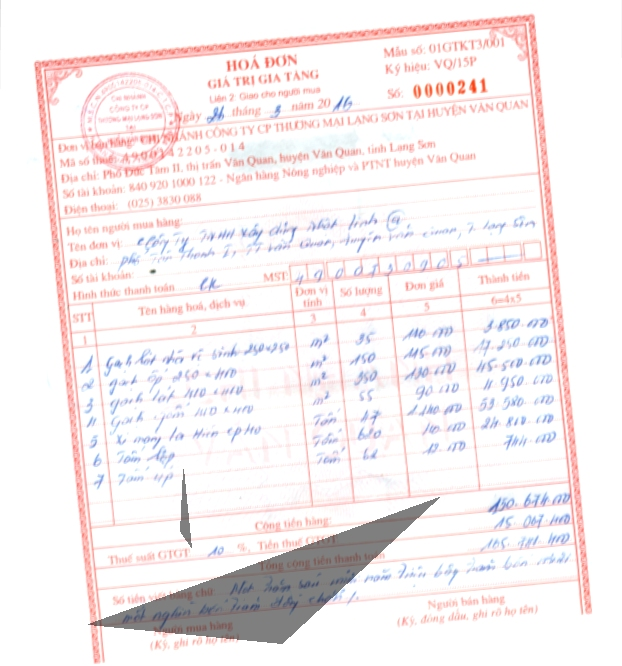 HOÁ ĐƠN
GIÁ TRỊ GIA TĂNG
Liên 2: Giao cho người mua
Ngày 26 tháng 3 năm 2016
Mẫu số: 01GTKT3/001
Ký hiệu: VQ/15P
Số: 0000241
CHI NHÁNH
CÔNG TY CP
THƯƠNG MẠI LẠNG SƠN
TẠI
Đơn vị bán hàng: CHI NHÁNH CÔNG TY CP THƯƠNG MẠI LẠNG SƠN TẠI HUYỆN VĂN QUAN
Mã số thuế: 4900142205-014
Địa chỉ: Phố Đức Tâm II, thị trấn Văn Quan, huyện Văn Quan, tỉnh Lạng Sơn
Số tài khoản: 840 920 1000 122 - Ngân hàng Nông nghiệp và PTNT huyện Văn Quan
Điện thoại: (025) 3830 088
Họ tên người mua hàng:
Tên đơn vị: Công Ty TNHH Xây dựng
Địa chỉ: phố Tân Thanh I, TT Văn Quan, huyện Văn Quan, T. Lạng Sơn
Số tài khoản:
Hình thức thanh toán CK MST:
STT Tên hàng hoá, dịch vụ Đơn vị tính Số lượng Đơn giá Thành tiền
1 2 3 4 5 6=4x5
1 gạch lát 250x250 m² 35 110.000 3.850.000
2 gạch ốp 250 x 400 m² 150 115.000 17.250.000
3 gạch lát 400 x 400 m² 350 130.000 45.500.000
4 gạch m² 55 90.000 4.950.000
5 xi măng Tấn 47 1.140.000 53.580.000
6 Tấm Tấm 620 40.000 24.800.000
7 Tấm úp Tấm 62 12.000 744.000
Cộng tiền hàng: 150.674.000
Thuế suất GTGT 10 %, Tiền thuế GTGT 15.067.400
Tổng cộng tiền thanh toán 165.741.400
Số tiền viết bằng chữ Một trăm sáu mươi năm triệu bảy trăm bốn mươi
một nghìn bốn trăm đồng chẵn.
Người mua hàng
(Ký, ghi rõ họ tên)
Người bán hàng
(Ký, đóng dấu, ghi rõ họ tên)